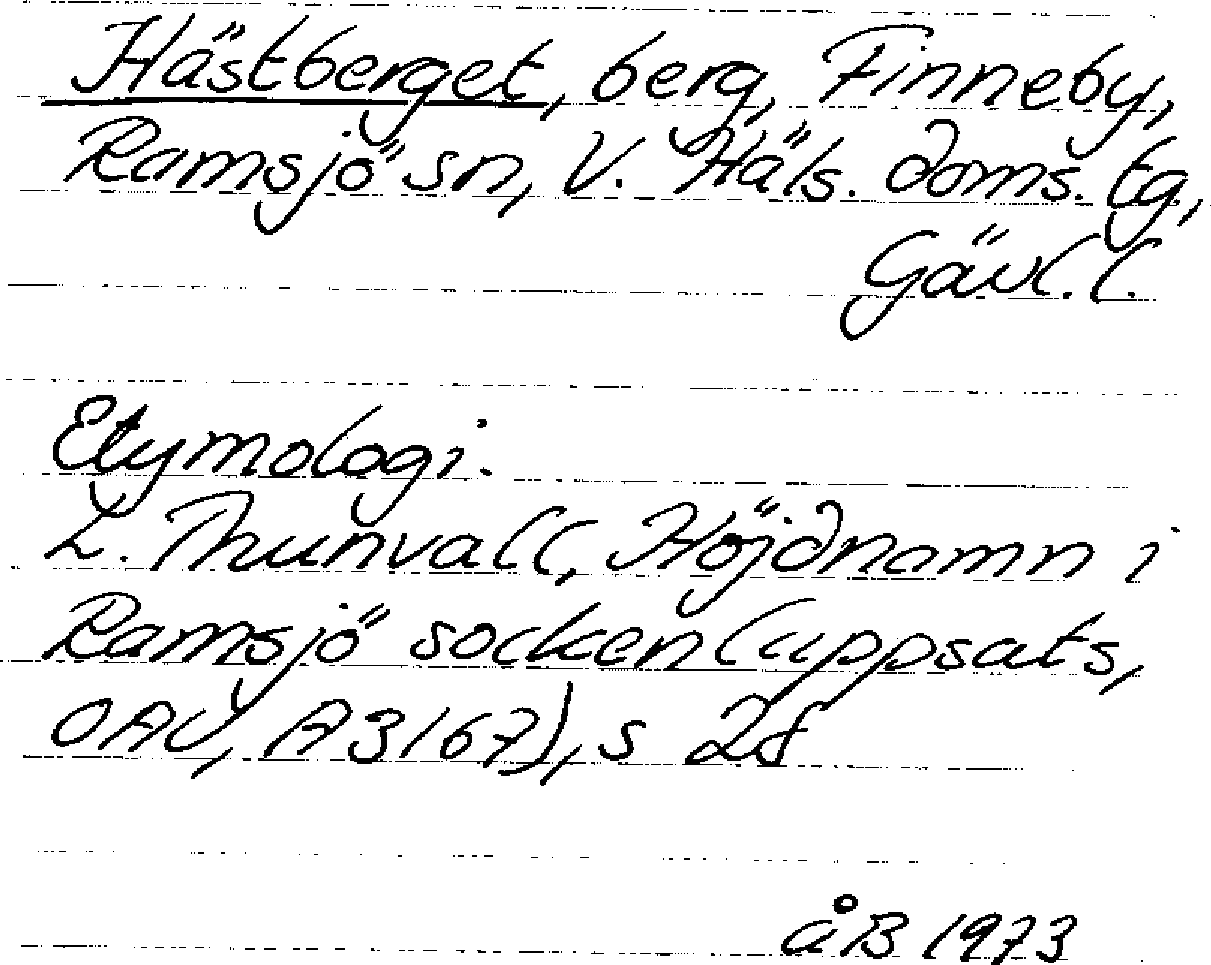 Hästberget, berg, Finneby,
Ramsjö sn, V. Häls. doms. tg,
Gävl. l.
Etymologi.
L. Thunvall, Höjdnamn i
Ramsjö socken (uppsats,
OAU, A3167), s 28
åB 1973